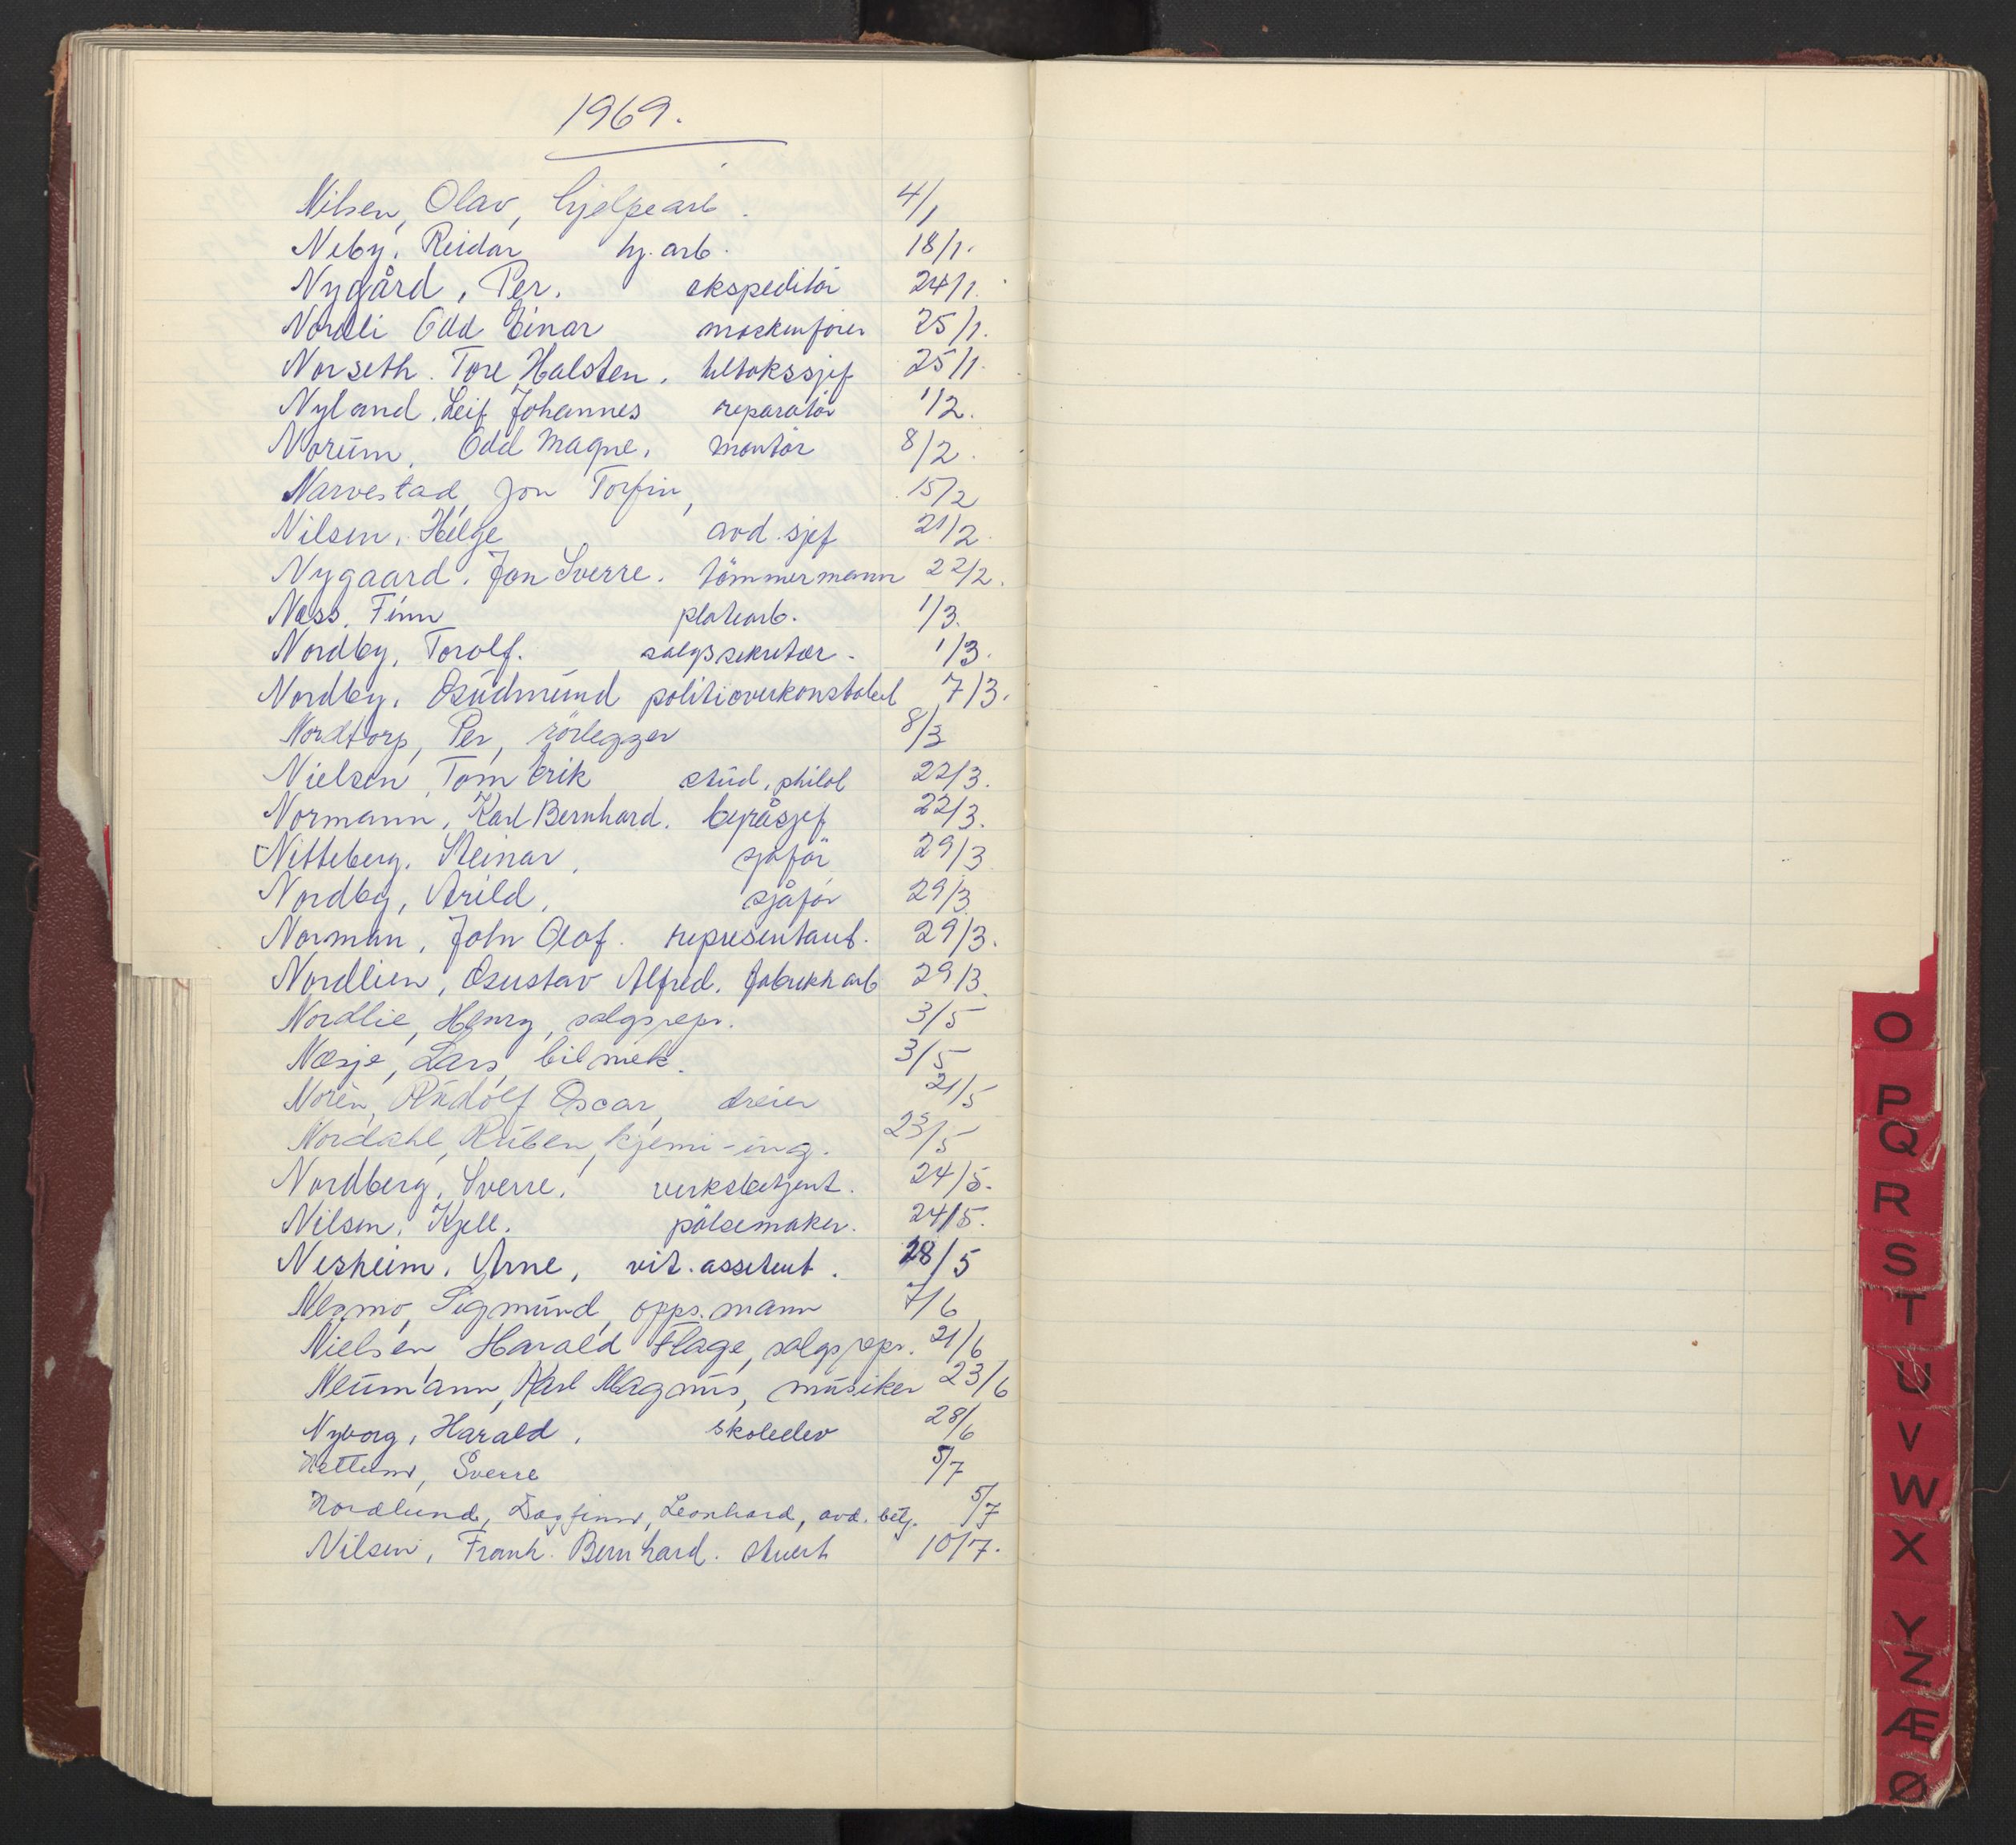 1969.
Nilsen, Olav, hjelpearb. 4/1
Neby, Reidar hj. arb. 18/1.
Nygård, Per. ekspeditör 24/1.
Nordli Odd Einar maskinfører 25/1.
Norseth. Tore Halsten. kltokssjef 25/1.
Nyland, Leif Johannes reparatör 1/2.
Norum, Odd Magne. montör 8/2.
Narvestad, Jon Torfin, 15/2
Nilsen, Helge avd. sjef 21/2.
Nygaard. Jon Sverre. tömmermann 22/2.
Næss. Finn platearb. 1/3.
Nordby, Torolf. salgssekretær. 1/3.
Nordby, Gudmund politioverkonstabel 7/3.
Nordtorp, Per, rörlegger 8/3
Nielsen, Tom Erik stud. philol 22/3.
Normann, Karl Bernhard. byråsjef 22/3.
Nitteberg. Steinar, sjåför 29/3
Nordby, Arild, sjåför 29/3
Norman, John Olof. representant. 29/3.
Nordlien, Gustav Alfred. fabrikkarb 29/3.
Nordlie, Henry, salgsrepr. 3/5
Næsje, Lars, bilmek. 3/5
Norèn, Rudolf Oscar, dreier 21/5
Nordahl, Ruben, kjemi-ing. 23/5
Nordberg, Sverre. verksbetjent. 24/5.
Nilsen, Kjell. pölsemaker. 24/5.
Nesheim, Arne, vit. assetent. 28/5
Nesmo, Sigmund, opps.mann 7/6
Nielsen Harald Flage, salgsrepr. 21/6
Neumann, Karl Magnus, musiker 23/6
Nyborg, Harald, skoleelev 28/6
Nettum, Sverre 5/7
Nordlund, Dagfinn, Leonhard, avd. betj. 5/7
Nilsen, Frank. Bernhard. stuert 10/7.
O
P
Q
R
S
T
U
V
W
X
Y
Z
Æ
Ø